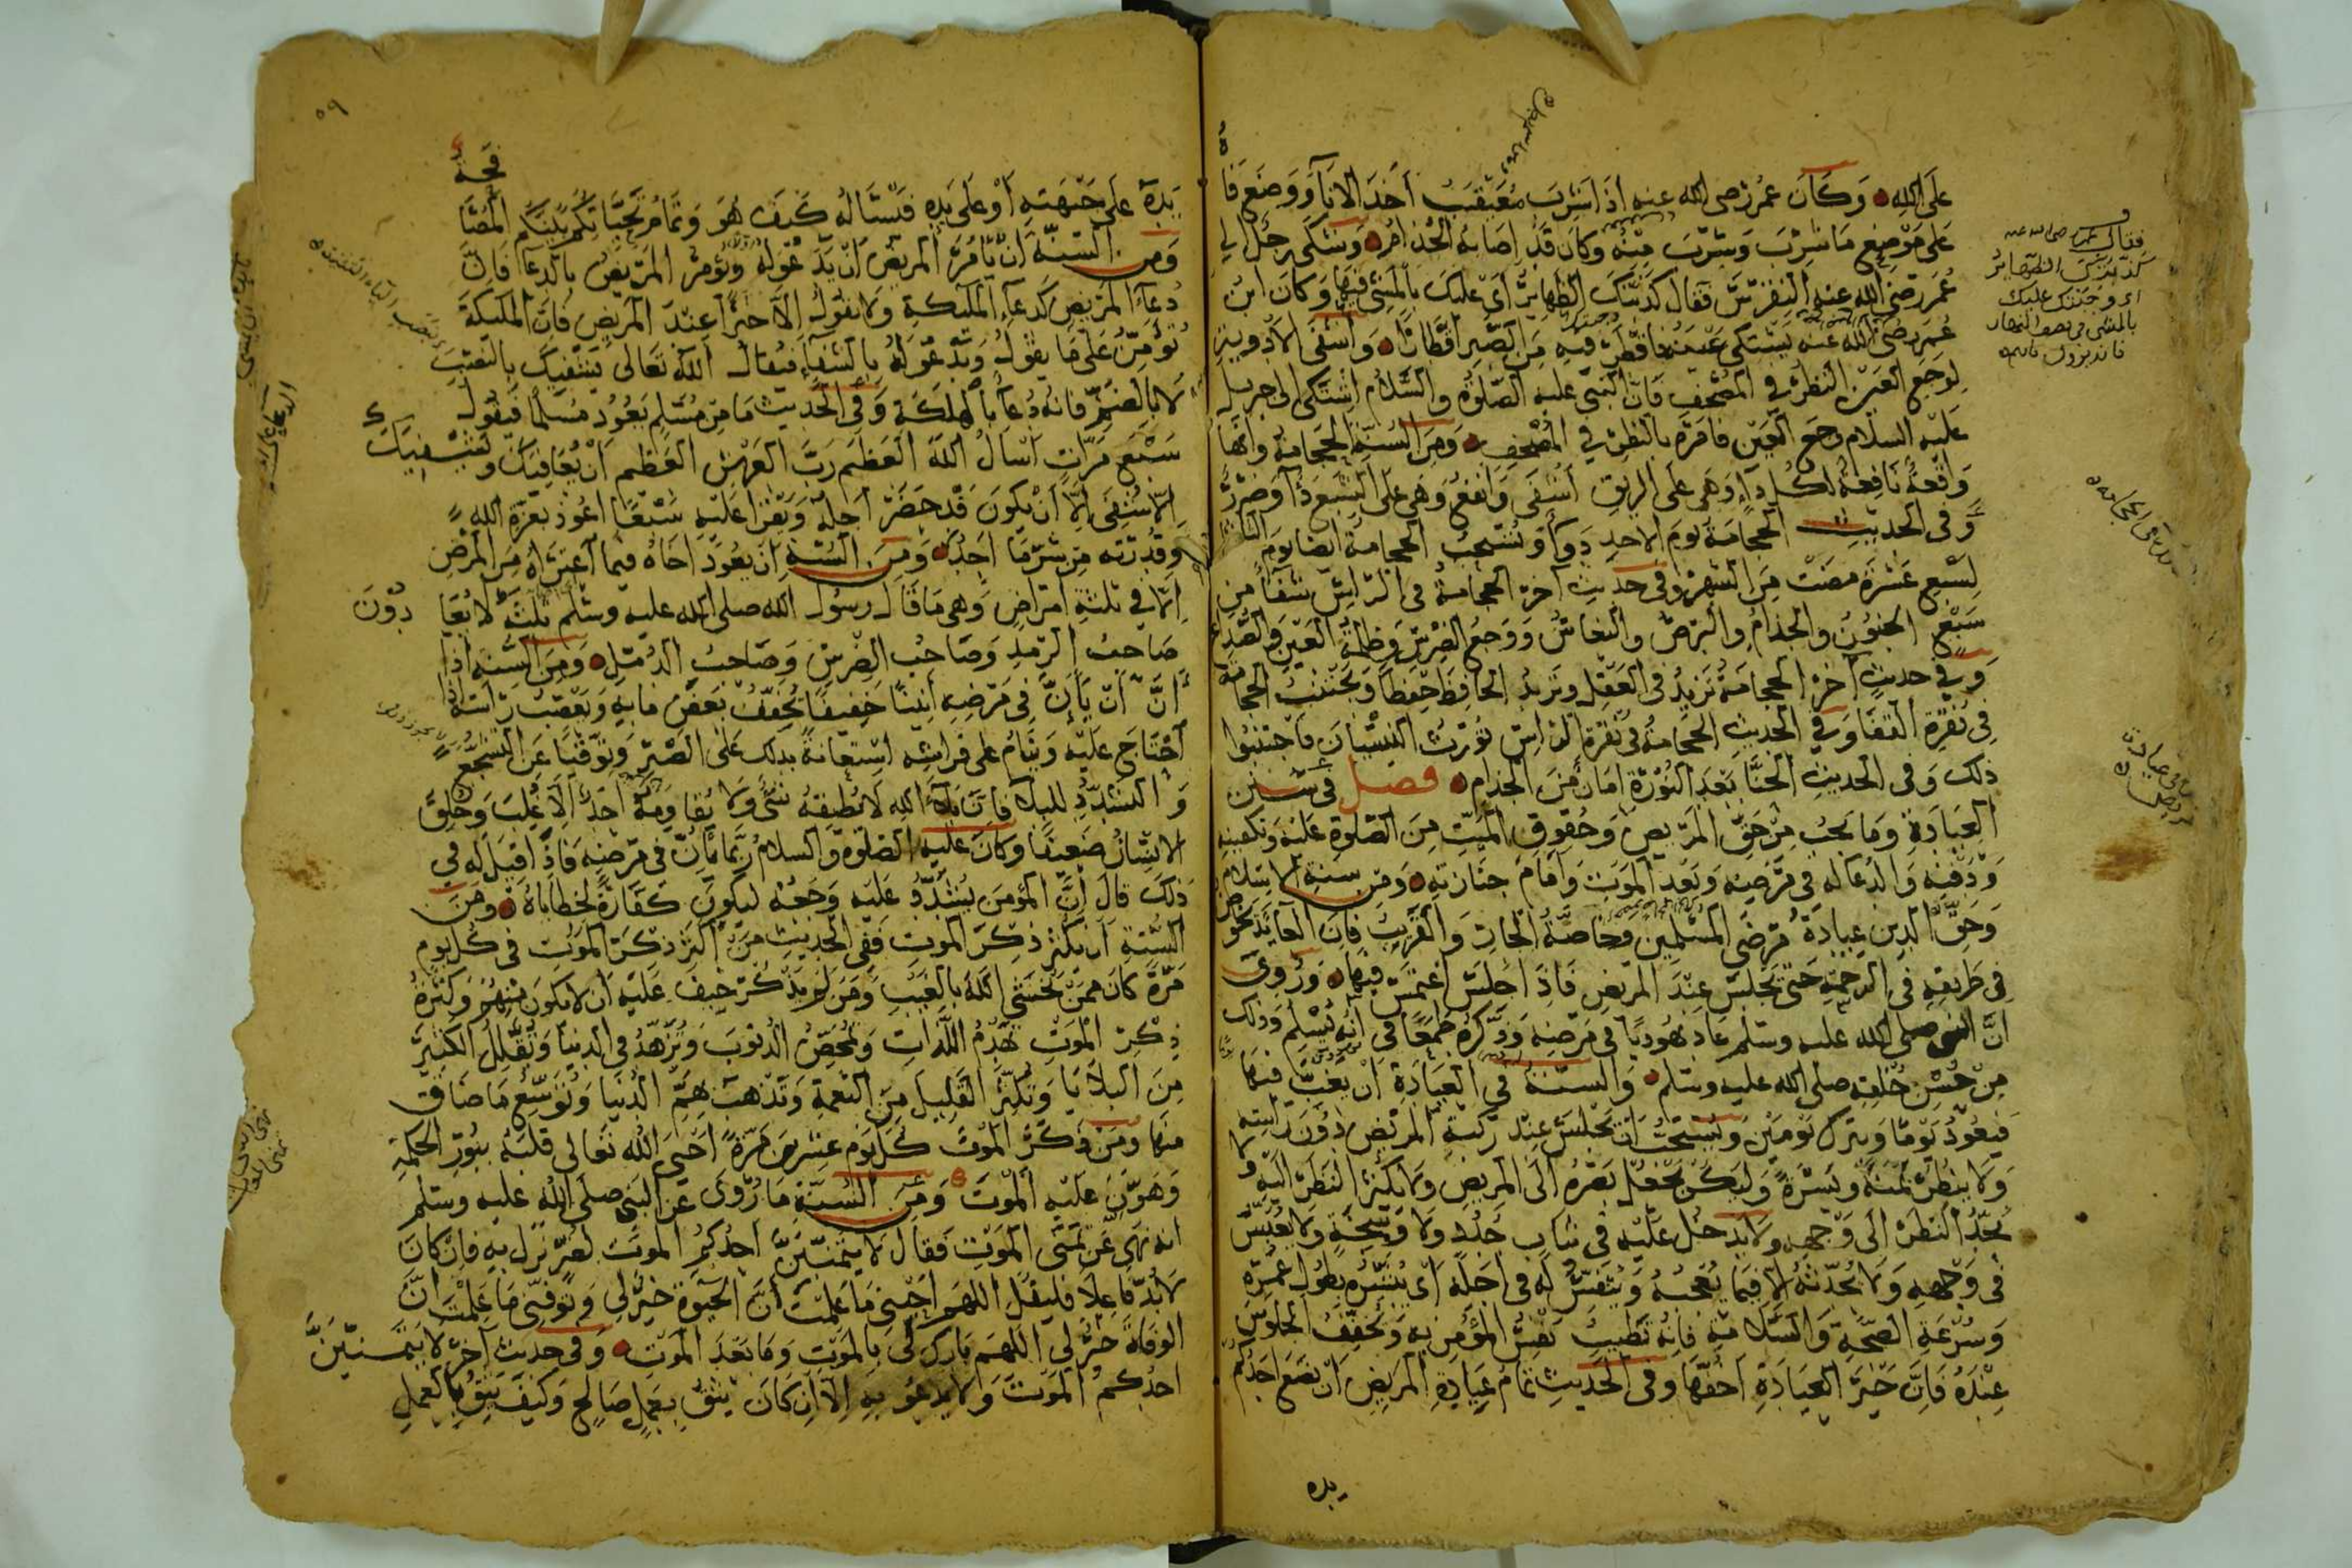 على الله وكان عمر رضى الله عنه اذا شرب معيقيب اخذ الاناء ووضع فاه
على موضع ما شرب وشرب منه وكان قد اصابه الجذام وشكى رجل الى
عمر رضى الله عنه النقرس فقال كذبتك الظهاير اى عليك بالمشى فيها وكان ابن
عمر رضى الله عنه يشتكى عينه فاقطر فيه من الصبر اقطارا واشفى الادوية
لوجع العين النظر فى المصحف فان النبى عليه الصلوة والسلام اشتكى الى جبريل
عليه السلام وجع العين فامره بالنظر فى المصحف ومن السنة الحجامة وانها
واقعة نافعة لكل داء وهى على الريق اشفى وانفع وهى على الشبع داء وضرر
وفى الحديث الحجامة يوم الاحد دواء وتستحب الحجامة ايضا يوم الثلثا
لسبع عشرة مضت من الشهر وفى حديث آخر الحجامة فى الراس شفاء من
سبع الجنون والجذام والبرص والنعاس ووجع الضرس وظلمة العين والصداع
وفى حديث آخر الحجامة تزيد فى العقل وتزيد الحافظ حفظا وتجتنب الحجامة
فى نقرة القفا وفى الحديث الحجامة فى نقرة الراس تورث النسيان فاجتنبوا
ذلك وفى الحديث الحنا بعد النورة امان من الجذام فصل فى سنن
العيادة وما يجب من حق المريض وحقوق الميت من الصلوة عليه وتكفينه
ودفنه والدعا له فى مرضه وبعد الموت وامام جنازته ومن سنة الاسلام
وحق الدين عيادة مرضى المسلمين وخاصة الجار والقريب فان العايد يخوض
فى طريقه فى الرحمة حتى يجلس عند المريض فاذا جلس اغتمس فيها وروى
ان النبى صلى الله عليه وسلم عاد يهوديا فى مرضه وذكره طمعا فى انه يسلم وذلك
من حسن خلقه صلى الله عليه وسلم والسنة فى العيادة ان يغب فيها
فيعود يوما ويترك يومين ويستحب ان يجلس عند ركبة المريض دون راسه
ولا ينظر يمنة ويسرة وليكن يجعل بصره الى المريض ولا يكثر النظر اليه ولا
يحد النظر الى وجهه ولا يدخل عليه فى ثياب جدد ولا وسخة ولا يعبس
فى وجهه ولا يحدثه الا فيما يعجبه وينفس له فى اجله اى يبشره بطول عمره
وسرعة الصحة والسلامة فانه تطيب نفس المؤمن به ويخفف الجلوس
عنده فان خير العيادة اخفها وفى الحديث تمام عيادة المريض ان يضع احدكم
يده
فقال عمر رضى الله عنه
كذبتك الظهاير
اى وجبتك عليك
بالمشى فى بعض النهار
٥٩
يده على جبهته او على يده فيسئاله كيف هو وتمام تحياتكم بينكم المصافحة
ومن السنة ان يامر المريض ان يدعو له ويؤمر المريض بالدعا فان
دعاء المريض كدعاء الملئكة ولا يقول الا خيرا عند المريض فان الملئكة
تؤمن على ما يقول ويدعو له بالشفاء فيقال الله تعالى يشفيك بالنصب
لا بالضم فانه دعا بالهلكة وفى الحديث ما من مسلم يعود مسلما فيقول
سبع مرات اسال الله العظيم رب العرش العظيم ان يعافيك ويشفيك
الا شفى الا ان يكون قد حضر اجله ويقرا عليه سبعا اعوذ بعزة الله
وقدرته من شر ما اجد ومن السنة ان يعود اخاه فيما اعتراه من المرض
الا فى ثلثة امراض وهى ما قال رسول الله صلى الله عليه وسلم ثلثة لا يعادون
صاحب الرمد وصاحب الضرس وصاحب الدمل ومن السنة اذا
ان يان فى مرضه انينا خفيفا يخفف بعض ما به ويعصب راسه
احتاج عليه وينام على فراشه استعانة بذلك على الصبر وتوقيا عن التشجع
والتشدد للبلاء فان بلاء الله لا يطيقه شى ولا يقاومه احد الا غلب وخلق
الانسان ضعيفا وكان عليه الصلوة والسلام ربما يان فى مرضه فاذا قيل له فى
ذلك قال ان المؤمن يشدد عليه وجعه ليكون كفارة لخطاياه ومن
السنة ان يكثر ذكر الموت ففى الحديث من اكثر ذكر الموت فى كل يوم
مرة كان ممن يخشى الله بالغيب ومن لم يذكر خيف عليه ان لا يكون منهم وكثرة
ذكر الموت تهدم اللذات وتمحص الذنوب وتزهد فى الدنيا وتقلل الكثير
من البلايا وتكثر القليل من النعمة وتذهب هم الدنيا وتوسع ما ضاق
منها ومن ذكر الموت كل يوم عشرين مرة احيى الله تعالى قلبه بنور الحكمة
وهون عليه الموت ومن السنة ما روى عن النبى صلى الله عليه وسلم
انه نهى عن تمنى الموت فقال لا يتمنين احدكم الموت لضر نزل به فان كان
لا بد فاعلا فليقل اللهم احينى ما علمت ان الحيوة خير لى وتوفنى ما علمت ان
الوفاة خير لى اللهم بارك لى بالموت وما بعد الموت وفى حديث آخر لا يتمنين
احدكم الموت ولا يدعو به الا ان كان يثق بعمل صالح وكيف يثق بالعمل